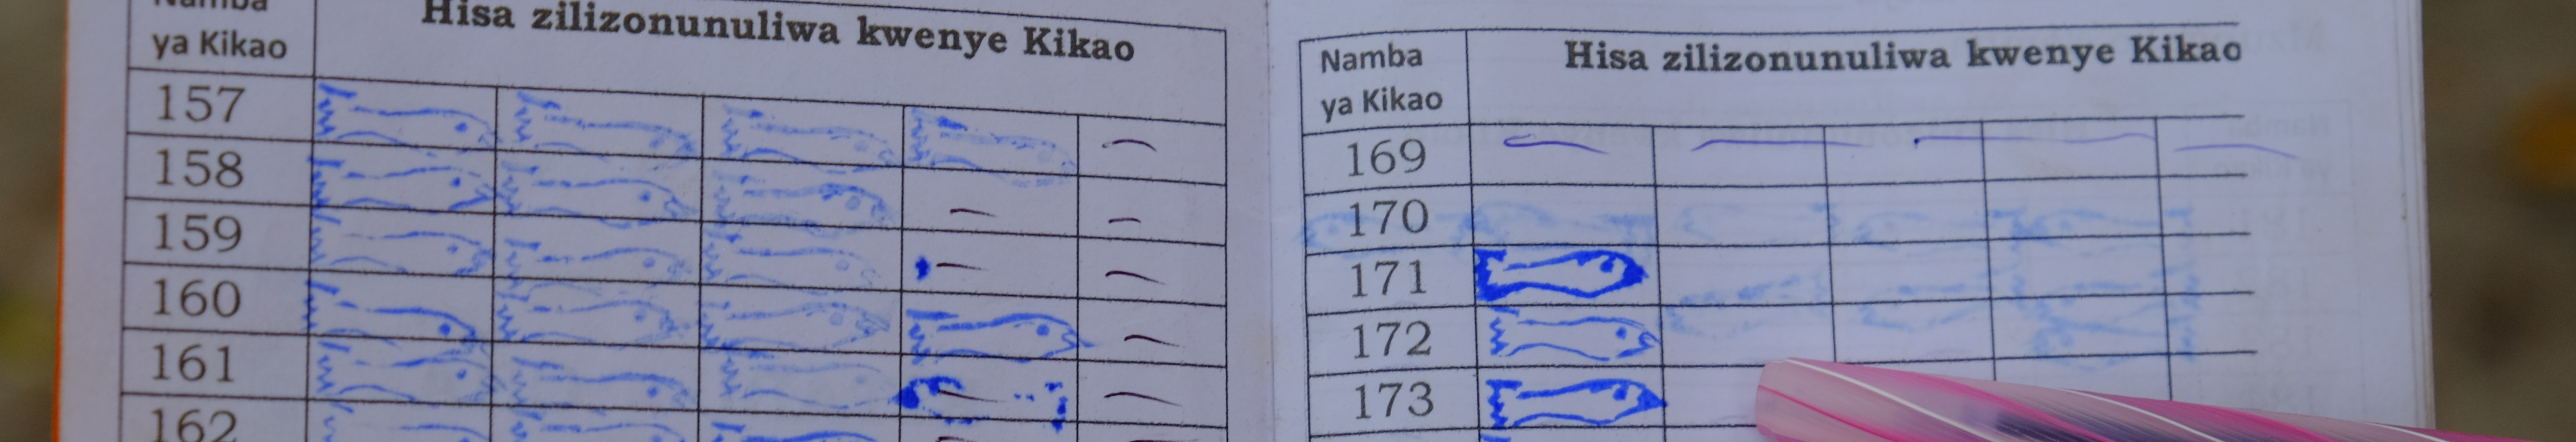 Namba
ya Kikao
Hisa zilizonunuliwa kwenye Kikao
157
158
159
160
161
162
Namba
ya Kikao
Hisa zilizonunuliwa kwenye Kikao
169
170
171
172
173